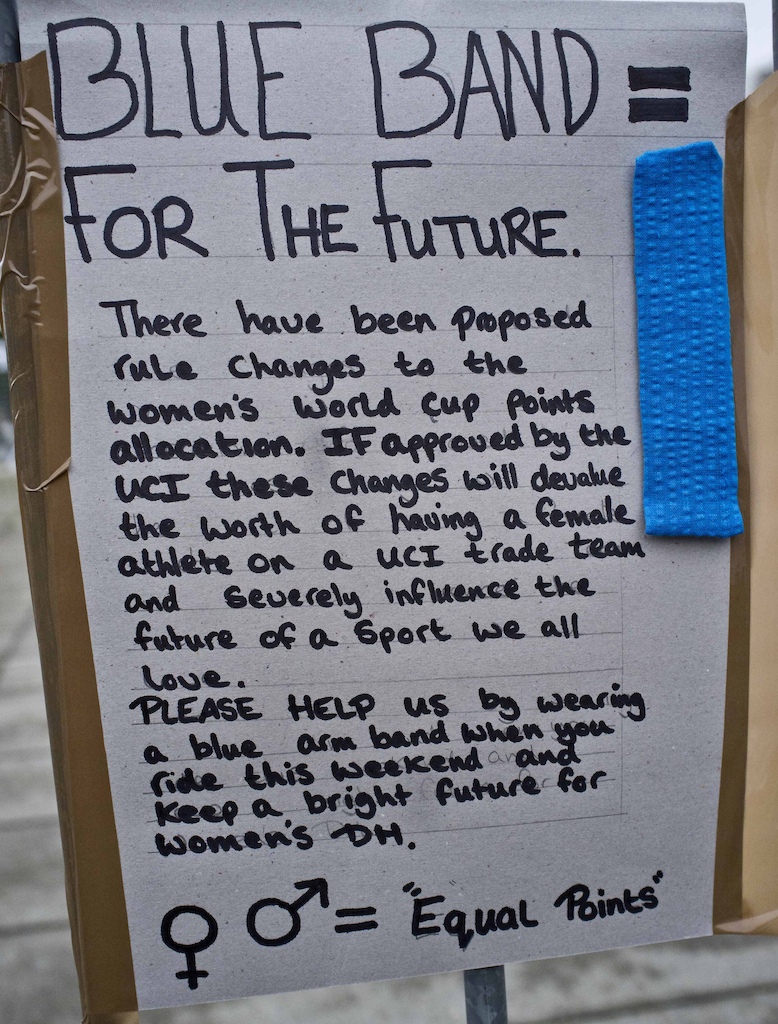 BLUE BAND =
FOR THE FUTURE.
There have been proposed
rule changes to the
women's world cup points
allocation. IF approved by the
UCI these changes will devalue
the worth of having a female
athlete on a UCI trade team
and severely influence the
future of a sport we all
love.
PLEASE HELP us by wearing
a blue arm band when you
ride this weekend and
keep a bright future for
women's DH.
♀ ♂ = "Equal Points"